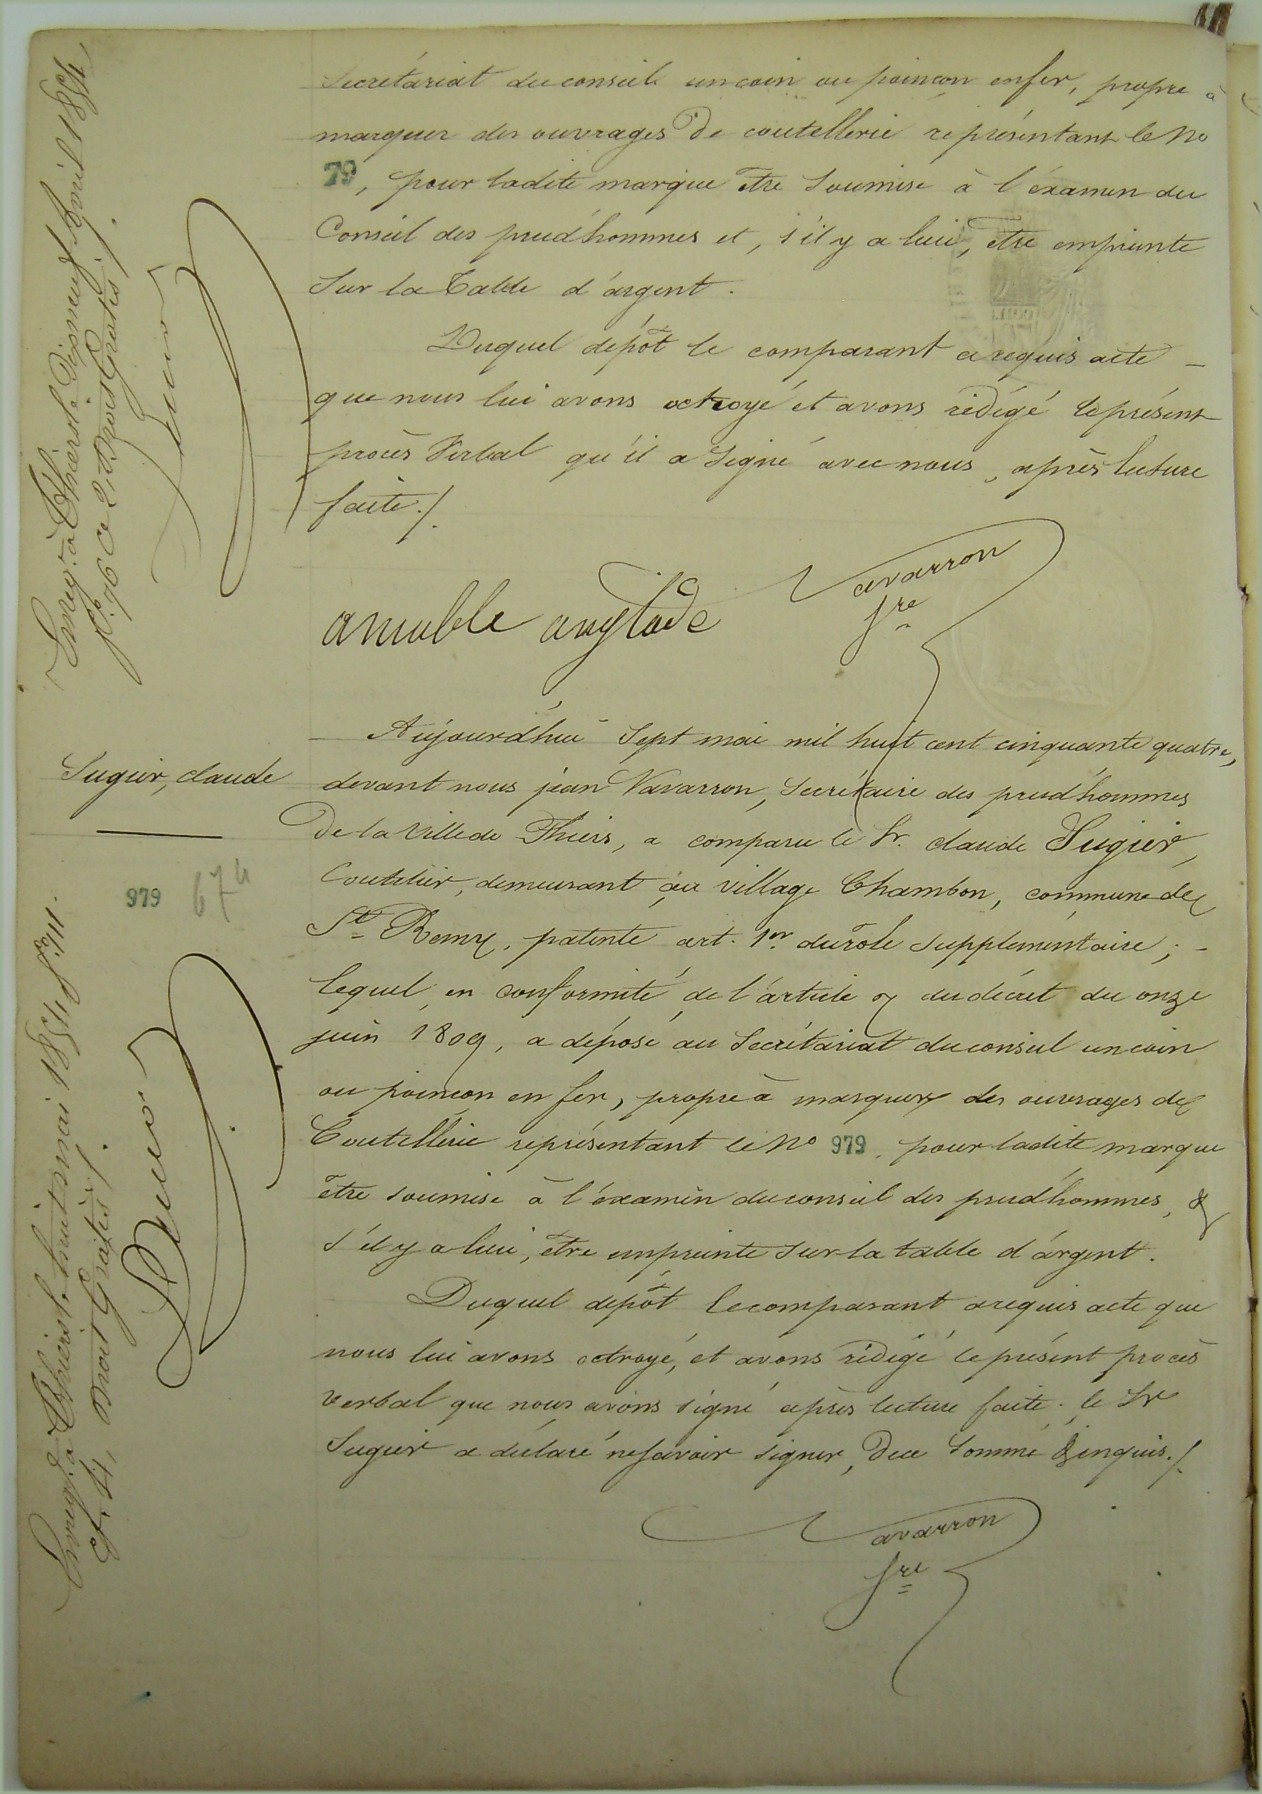 Secrétariat du conseil un coin ou poinçon en fer, propre à
marquer des ouvrages de coutellerie représentant le No
79, pour ladite marque être soumise à l'éxamen du
Conseil des prud'hommes et, s'il y a lieu, être empreinte
sur la Table d'argent.
Duquel dépôt le comparant a requis acte
que nous lui avons octroyé et avons rédigé le présent
procès Verbal qu'il a signé avec nous, après lecture
faite./.
amable anglade
Navarron
sre
Enreg. à Thiers le Dixneuf Avril 1854
fo. 96 Ce 2. Droit Gratis /.
Aujourd'hui Sept mai mil huit cent cinquante quatre,
Sugier, claude
devant nous jean Navarron, Secrétaire des prud'hommes
De la Ville de Thiers, a comparu le Sr. claude Sugier,
Coutelier, demeurant au village Chambon, commune de
St Remy, patenté art. 1er du role supplémentaire;
979
lequel, en conformité de l'article 7 du décret du onze
juin 1809, a déposé au Secrétariat du conseil un coin
ou poinçon en fer, propre à marquer des ouvrages de
Coutellerie représentant le No 979, pour ladite marque
être soumise à l'éxamen du conseil des prud'hommes, &
s'il y a lieu, être empreinte sur la table d'argent.
Duquel dépôt le comparant a requis acte que
nous lui avons octroyé, et avons rédigé le présent procès
verbal que nous avons signé après lecture faite. le Sr
Sugier a déclaré ne savoir signer, De ce Sommé & enquis./.
Navarron
sre
Enreg. à Thiers le huit mai 1854 fo. 111.
Ce. 4, Droit Gratis /.